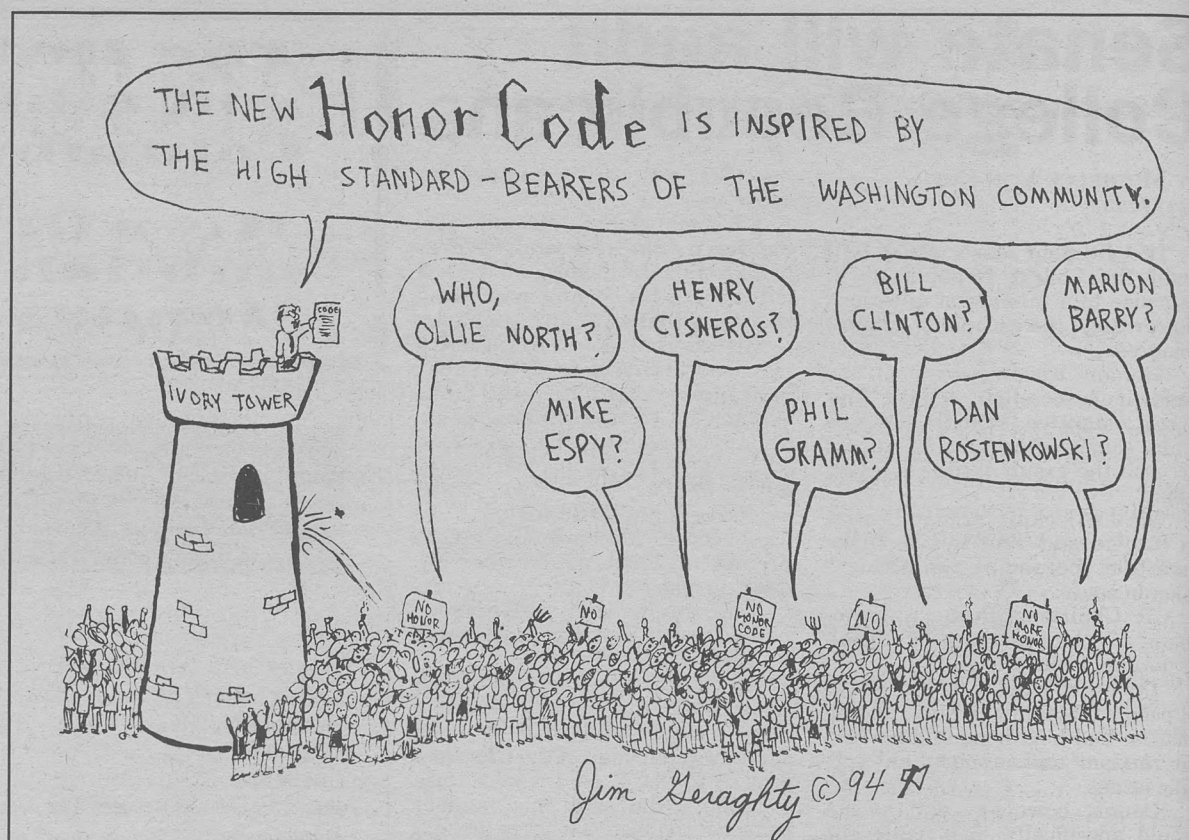 THE NEW Honor Code IS INSPIRED BY
THE HIGH STANDARD-BEARERS OF THE WASHINGTON COMMUNITY.
CODE
IVORY TOWER
WHO,
OLLIE NORTH?
MIKE
ESPY?
HENRY
CISNEROS?
PHIL
GRAMM?
BILL
CLINTON?
DAN
ROSTENKOWSKI?
MARION
BARRY?
NO
HONOR
NO
NO
HONOR
CODE
NO
NO
MORE
HONOR
Jim Geraghty © 94